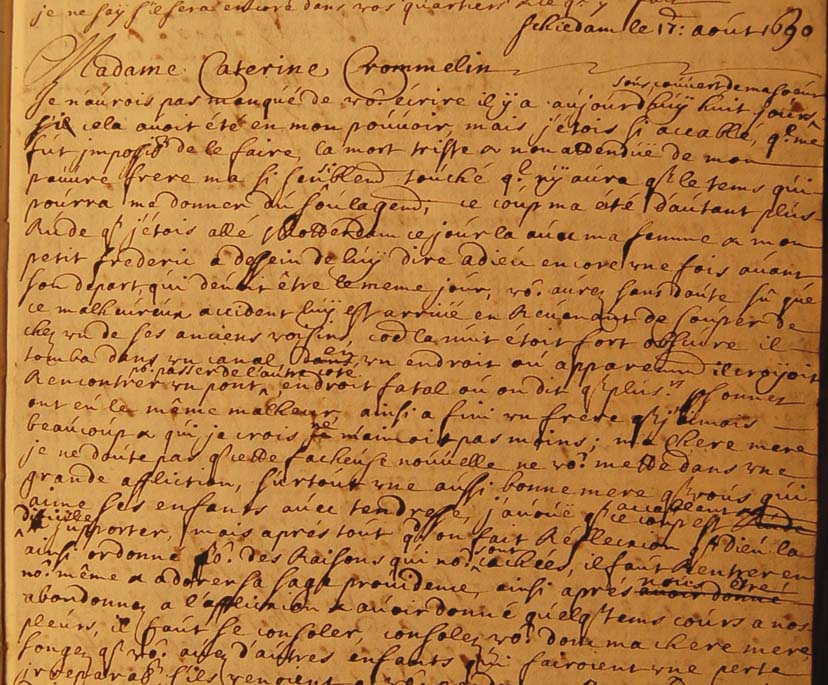 je ne say s'il sera encore dans vos quartiers
Schiedam le 17: août 1690
Madame Caterine Crommelin
sous couvert de ma soeur
Je n'aurois pas manqué de vo. écrire il ÿ a aujourdhuÿ huit jours
s'il cela avoit été en mon pouvoir, mais j'étois si accablé, q. me
fut imposs. de le faire, la mort triste & non attenduë de mon
pauvre frere ma si touché q. n'ÿ aura q. le tems qui
pourra me donner du soulagem.t, ce coup ma été dautant plus
Rude q. j'étois allé Rotterdam ce jour la avec ma femme & mon
petit frederic a dessein de luÿ dire adieu encore une fois avant
son depart, qui devoit être le meme jour, vo. aurez sans doute sû que
ce malheureux accident luÿ est arrivé en Revenant de souper de
chez un de ses anciens voisins, la nuit étoit fort obscure il
tomba dans un canal dans en un endroit où apparem.t il croyoit
po. passer de l'autre coté
Rencontrer un pont, endroit fatal où on dit q. plus.rs personnes
ont eû le même malheur, ainsi a fini un frere q. j'aimois
beaucoup & qui je crois ne m'aimoit pas moins; ma chere mere
je ne doute pas q. cette facheuse nouvelle ne vo. mette dans une
grande affliction, surtout une aussi bonne mere q. vous qui
aime ses enfants avec tendresse, j'avouë q. ce coup est accablant Rude
difficile a supporter, mais aprés tout q. on fait Reflection q. Dieu la
ainsi ordonné po. des Raisons qui no. sont cachées, il faut Rentrer en
no. même & adorer sa sage providence, ainsi aprés nous être avoir donné
abandonnez a l'affliction & avoir donné quelq. tems cours a nos
pleurs, il faut se consoler, consolez vo. donc ma chere mere,
songez q. vo. avez d'autres enfants qui fairoient une perte
irreparab. s'ils venoient